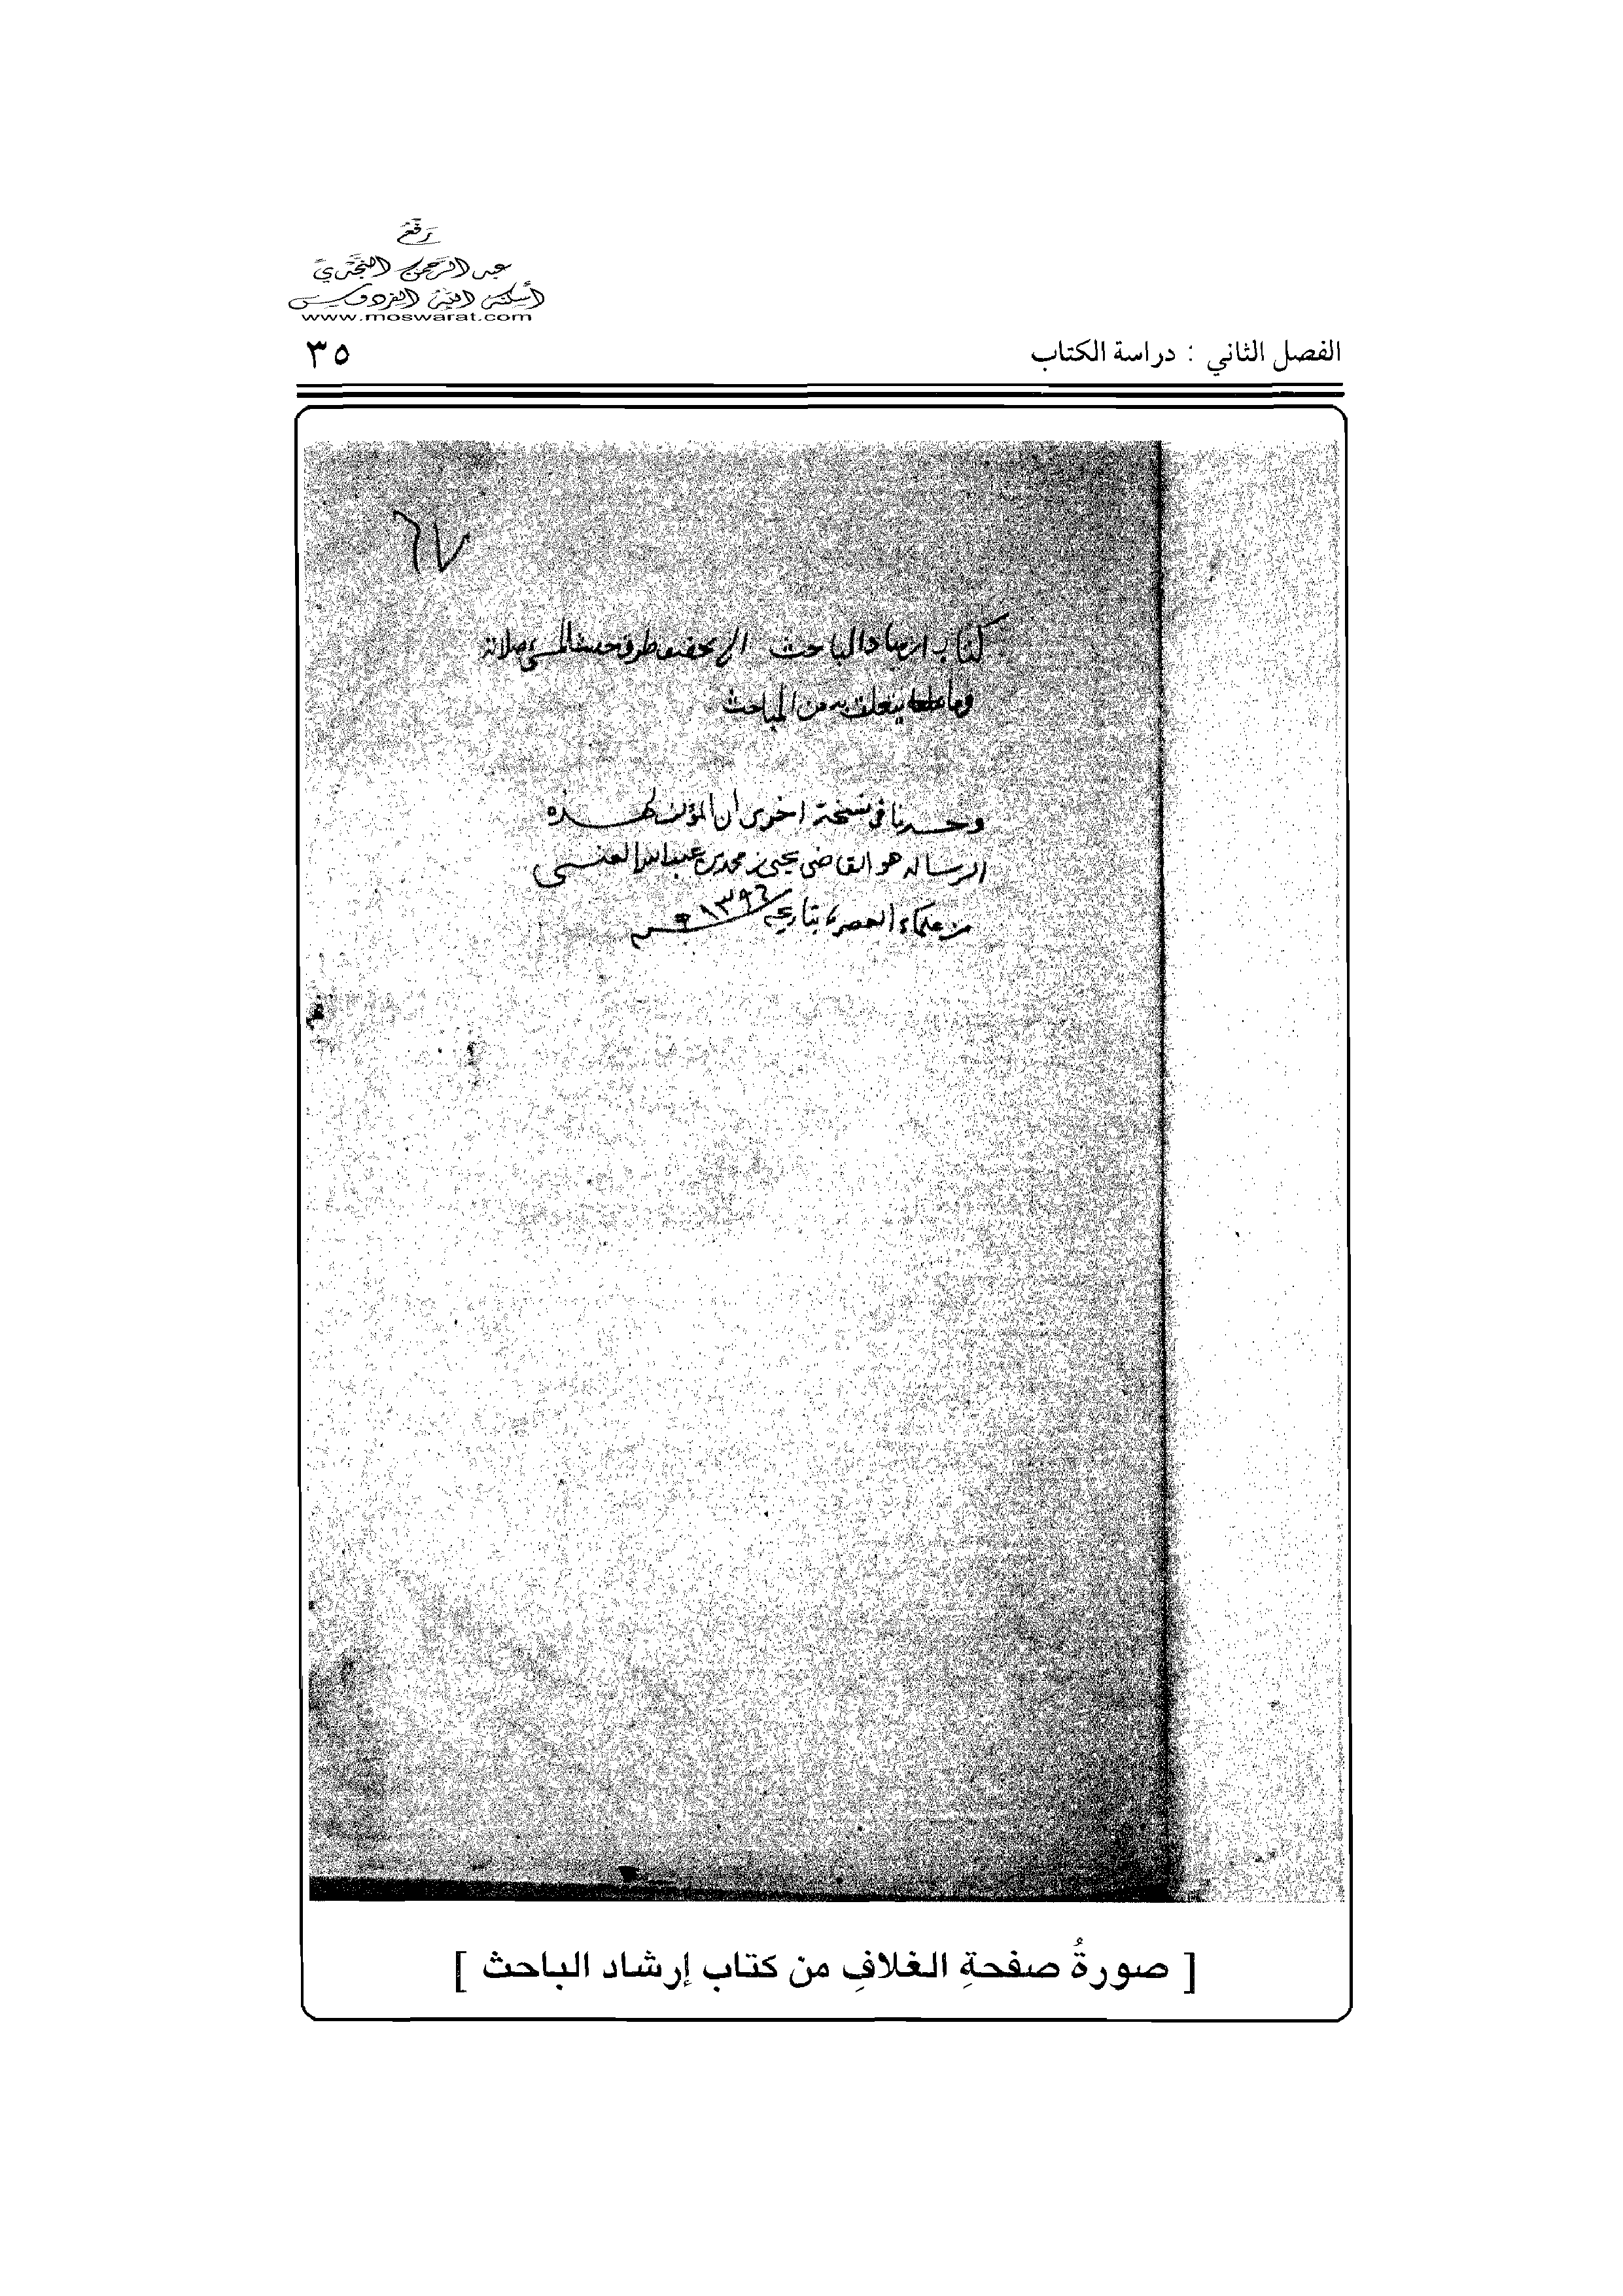 رَفْعُ
عبد الرحمن النجدي
أسكنه الله الفردوس
www.moswarat.com
الفصل الثاني : دراسة الكتاب
٣٥
٦٧
كتاب ارشاد الباحث الى تحقيق طرق حديث المسيء صلاته
وما يتعلق به من المباحث
وجدنا في نسخة اخرى أن المؤلف لهذه
الرساله هو القاضي يحيى بن محمد بن عباس العنسي
من علماء العصر بتاريخ ١٣٩٦
[ صورةُ صفحةِ الغلافِ من كتاب إرشاد الباحث ]